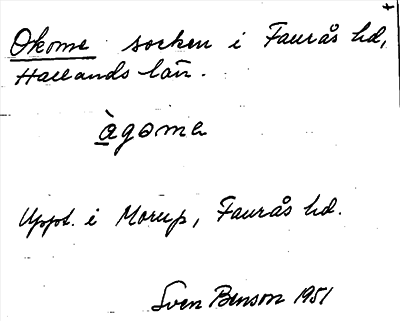 Okome socken i Faurås hd,
Hallands län.
àgəmɐ
Uppt. i Morup, Faurås hd.
Sven Benson 1951